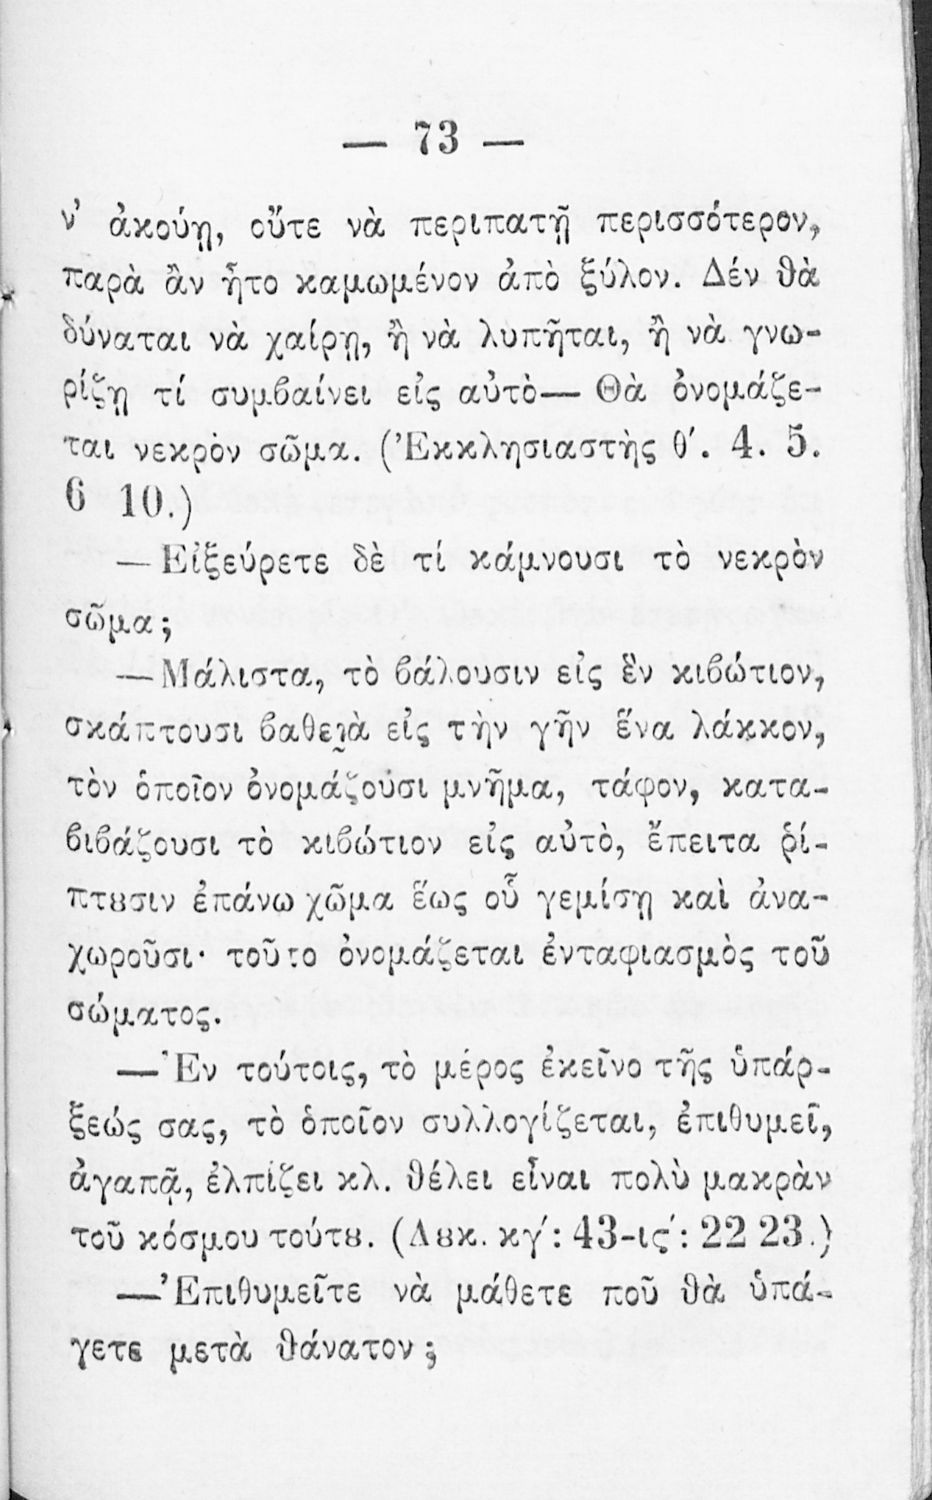 — 73 —
ν' ἀκούῃ, οὔτε νὰ περιπατῇ περισσότερον,
παρὰ ἂν ἦτο καμωμένον ἀπὸ ξύλον. Δέν θὰ
δύναται νὰ χαίρῃ, ἢ νὰ λυπῆται, ἢ νὰ γνω-
ρίζῃ τί συμβαίνει εἰς αὐτὸ— Θὰ ὀνομάζε-
ται νεκρὸν σῶμα. (Ἐκκλησιαστὴς θ'. 4. 5.
6 10.)
— Εἰξεύρετε δὲ τί κάμνουσι τὸ νεκρὸν
σῶμα;
— Μάλιστα, τὸ βάλουσιν εἰς ἓν κιβώτιον,
σκάπτουσι βαθειὰ εἰς τὴν γῆν ἕνα λάκκον,
τὸν ὁποῖον ὀνομάζουσι μνῆμα, τάφον, κατα-
βιβάζουσι τὸ κιβώτιον εἰς αὐτὸ, ἔπειτα ῥί-
πτȣσιν ἐπάνω χῶμα ἕως οὗ γεμίσῃ καὶ ἀνα-
χωροῦσι· τοῦτο ὀνομάζεται ἐνταφιασμὸς τοῦ
σώματος.
— Ἐν τούτοις, τὸ μέρος ἐκεῖνο τῆς ὑπάρ-
ξεώς σας, τὸ ὁποῖον συλλογίζεται, ἐπιθυμεῖ,
ἀγαπᾷ, ἐλπίζει κλ. θέλει εἶναι πολὺ μακρὰν
τοῦ κόσμου τούτȣ. (Λȣκ. κγ': 43-ις': 22 23.)
— Ἐπιθυμεῖτε νὰ μάθετε ποῦ θὰ ὑπά-
γετε μετὰ θάνατον;